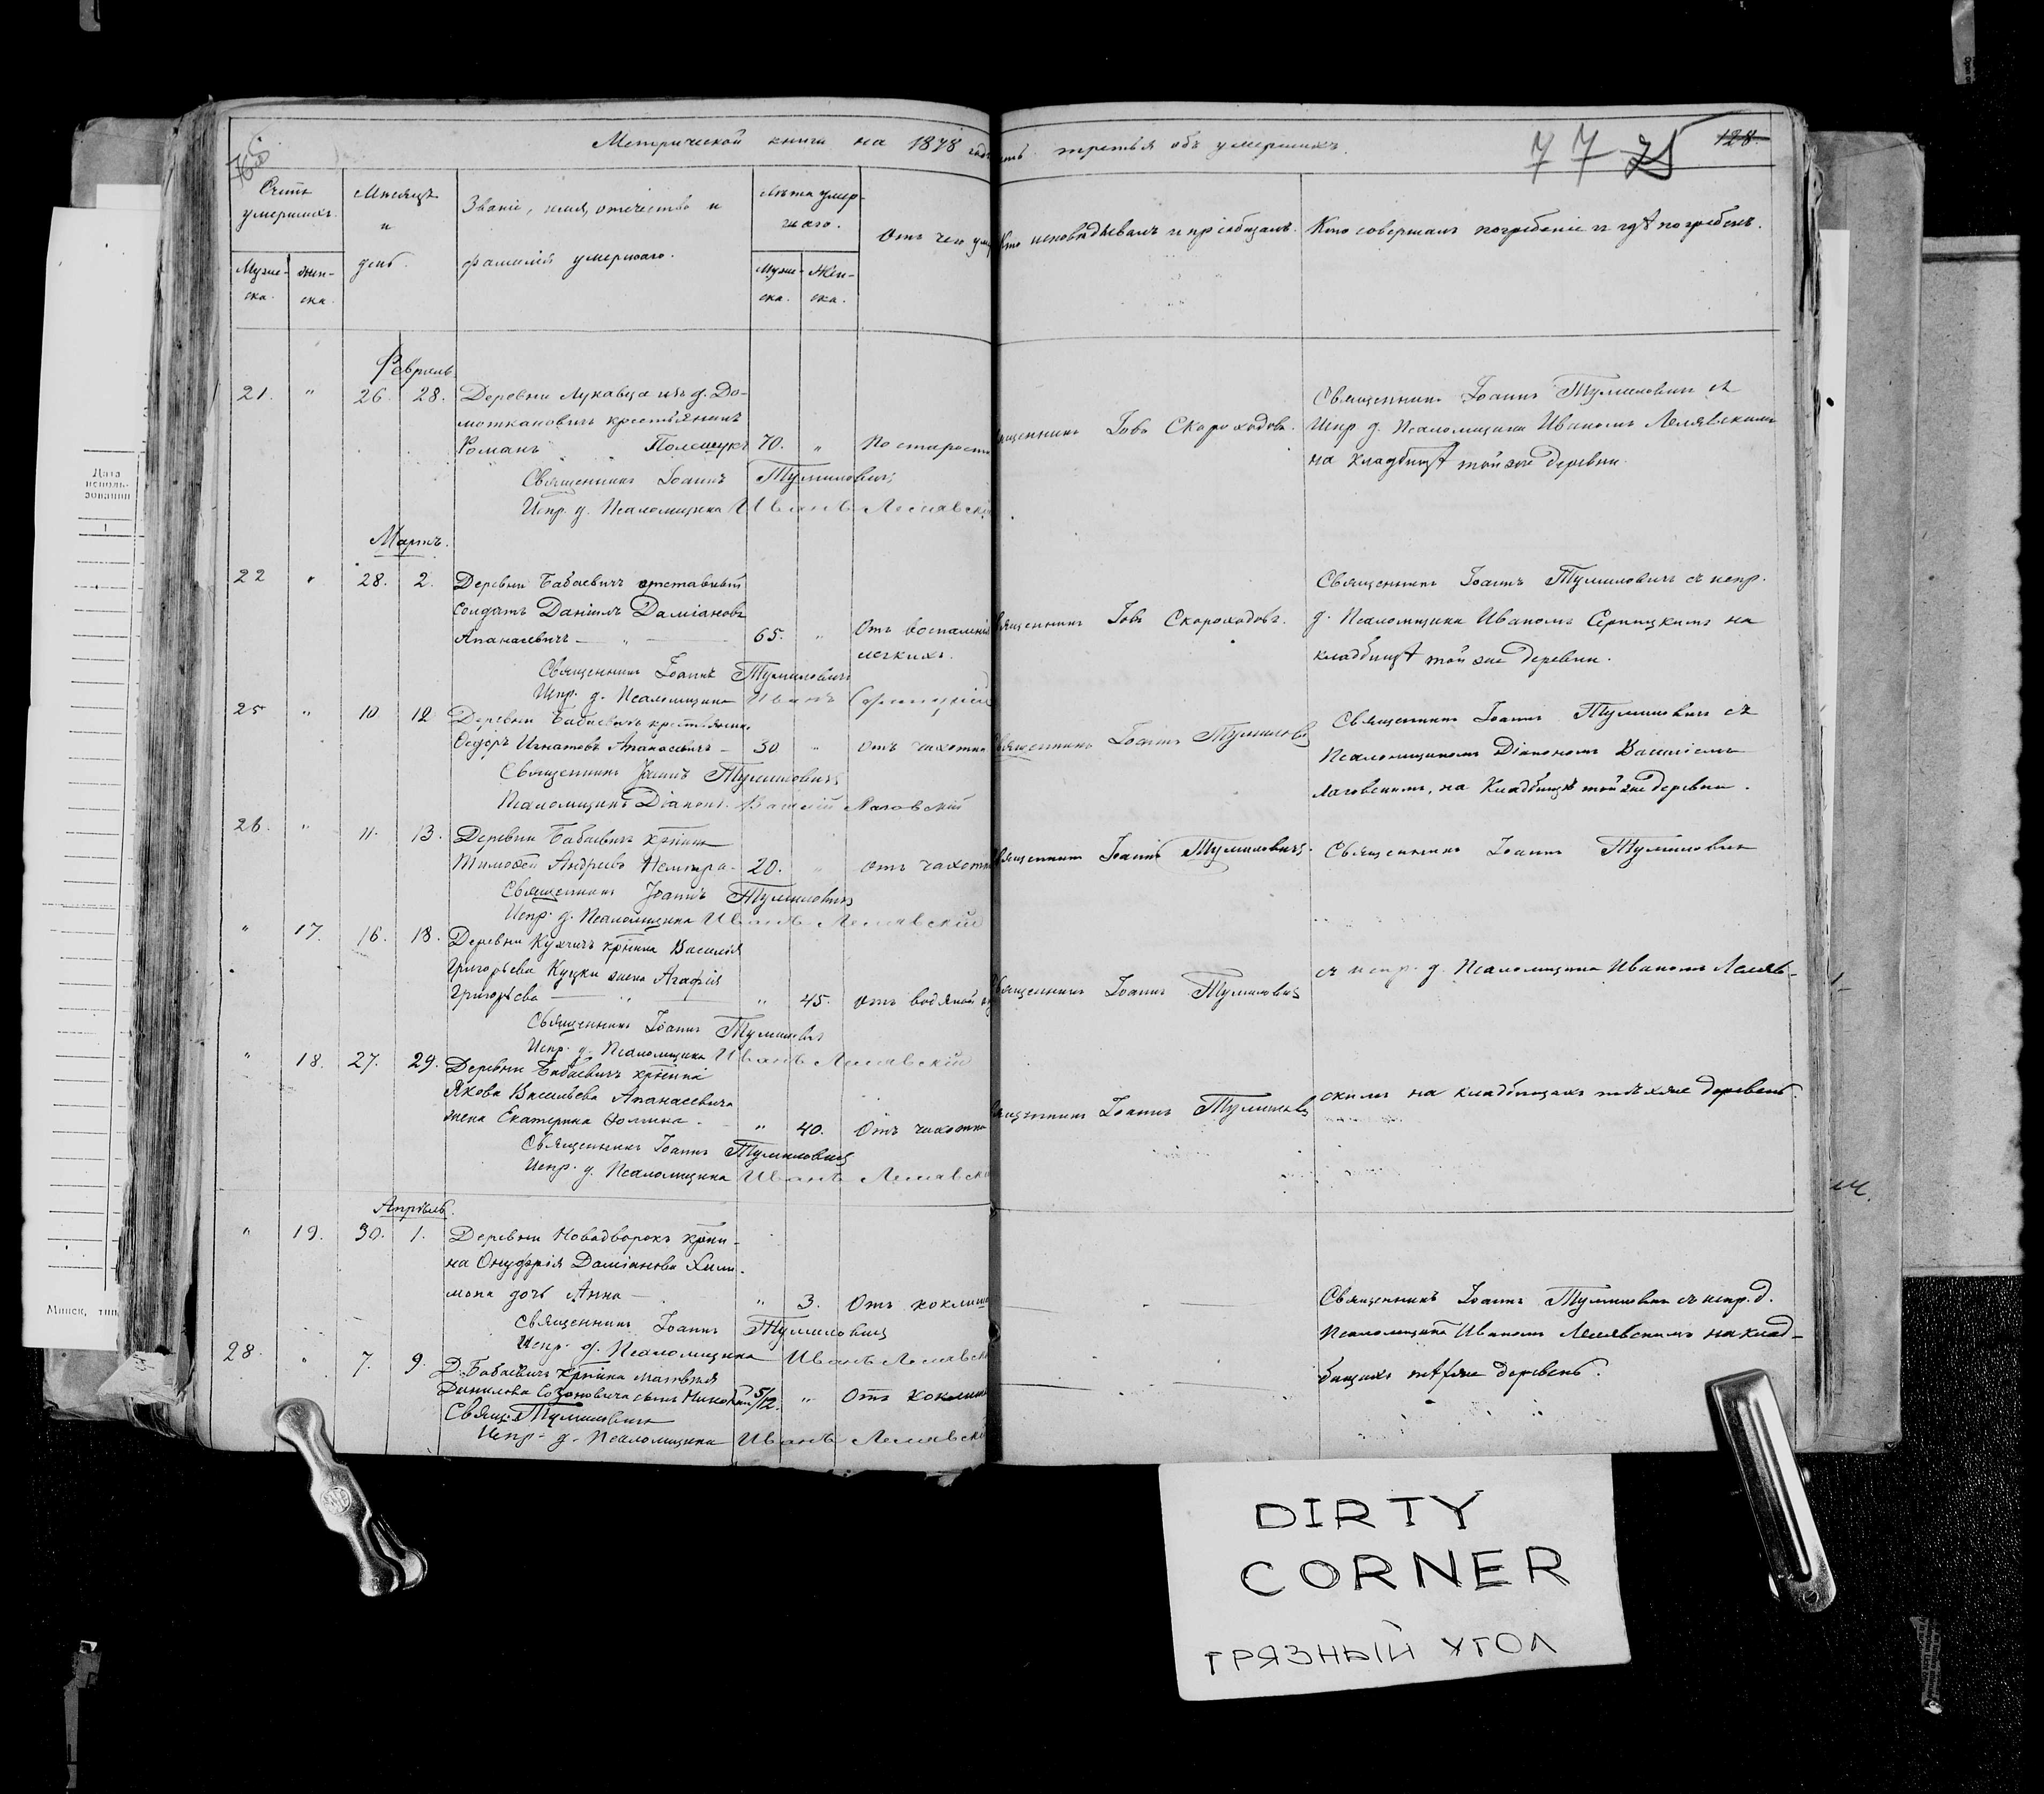 Метрической книги на 1878 годъ
часть третья объ умершихъ.
77 25 128.
Счетъ умершихъ.
Мѣсяцъ и день.
Званіе, имя, отчество и
фамилія умершаго.
Лѣта умер-
шаго.
Отъ чего
Кто исповѣдывалъ и пріобщалъ.
Кто совершалъ погребеніе и гдѣ погребенъ.
Муже-
ска.
Жен-
ска.
Муже-
ска.
Жен-
ска.
Февраль
21. " 26. 28. Деревни Лукавца изъ д. До-
моткановичъ крестьянинъ
Романъ Полещукъ 70. " По старости
Священникъ Іоаннъ Тумиловичъ
Испр. д. Псаломщика Иванъ Лелявскій
Священникъ Іовъ Скороходовъ.
Священникъ Іоаннъ Тумиловичъ съ
Испр. д. Псаломщика Иваномъ Лелявскимъ
на кладбищѣ той же деревни.
Мартъ.
22 " 28. 2. Деревни Бабаевичъ отставный
солдатъ Даніилъ Даміановъ
Апанасевичъ — " — 65. " Отъ воспаленія
легкихъ.
Священникъ Іоаннъ Тумиловичъ
Испр. д. Псаломщика Иванъ
Священникъ Іовъ Скороходовъ.
Священникъ Іоаннъ Тумиловичъ съ испр.
д. Псаломщика Иваномъ на
кладбищѣ той же деревни.
25 " 10. 12. Деревни Бабаевичъ крестьянинъ
Ѳедоръ Игнатовъ Апанасевичъ — 30 " Отъ чахотки
Священникъ Іоаннъ Тумиловичъ
Псаломщикъ Діаконъ Василій
Священникъ Іоаннъ Тумиловичъ
Священникъ Іоаннъ Тумиловичъ съ
Псаломщикомъ Діакономъ Василіемъ
на кладбищѣ той же деревни.
26. " 11. 13. Деревни Бабаевичъ крнинъ
Тимоѳей Андреевъ 20. " Отъ чахотки
Священникъ Іоаннъ Тумиловичъ
Испр. д. Псаломщика Иванъ Лелявскій
Священникъ Іоаннъ Тумиловичъ.
Священникъ Іоаннъ Тумиловичъ
" 17. 16. 18. Деревни Кухчичъ крнина Василія
Григорьева Куцки жена Агафія
Григорьева — " " 45. Отъ водяной
Священникъ Іоаннъ Тумиловичъ
Испр. д. Псаломщика Иванъ Лелявскій
Священникъ Іоаннъ Тумиловичъ
съ испр. д. Псаломщика Иваномъ Леляв-
" 18. 27. 29. Деревни Бабаевичъ крнина
Якова Васильева Апанасевича
жена Екатерина Ѳомина. " 40. Отъ чахотки
Священникъ Іоаннъ Тумиловичъ
Испр. д. Псаломщика Иванъ Лелявскій
Священникъ Іоаннъ Тумиловичъ
скимъ на кладбищахъ тѣхже деревень.
Апрѣль.
" 19. 30. 1. Деревни Новодворокъ крни-
на Онуфрія Даміанова Хили-
мона дочь Анна — " 3. Отъ коклюша
Священникъ Іоаннъ Тумиловичъ
Испр. д. Псаломщика Иванъ Лелявскій
Священникъ Іоаннъ Тумиловичъ съ испр. д.
Псаломщика Иваномъ Лелявскимъ на клад-
бищахъ тѣхже деревень.
28. " 7. 9. Д. Бабаевичъ крнина Матвѣя
Данилова Созоновича сынъ Николай 5/12. " Отъ коклюша
Свящ. І. Тумиловичъ
Испр. д. Псаломщика Иванъ Лелявскій
Дата
исполь-
зования
Минск, тип.
DIRTY
CORNER
ГРЯЗНЫЙ УГОЛ